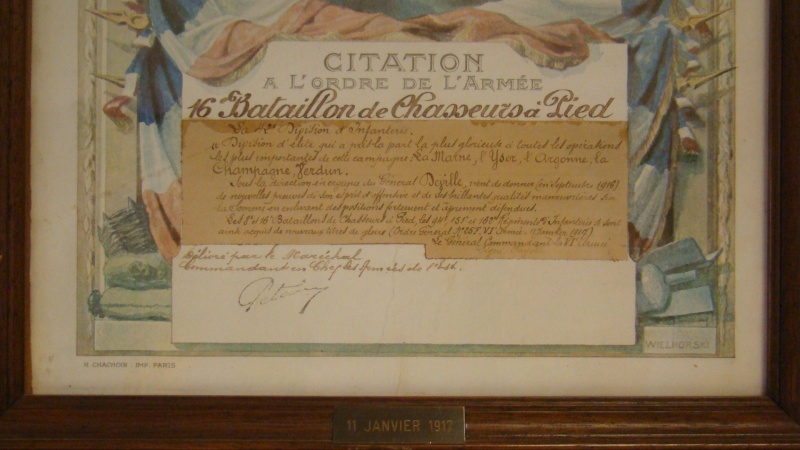 CITATION
A L'ORDRE DE L'ARMÉE
16e Bataillon de Chasseurs à Pied
La Division d'Infanterie.
« Division d'élite qui a pris la part la plus glorieuse à toutes les opérations
les plus importantes de cette campagne La Marne, l'Yser, l'Argonne, la
Champagne, Verdun.
Sous la direction énergique du Général Deville, vient de donner (en Septembre 1916)
de nouvelles preuves de son esprit d'offensive et de ses brillantes qualités manœuvrières sur
la Somme en enlevant des positions fortement et âprement défendues.
Les 8e et 16e Bataillons de Chasseurs à Pied, les 94e, 151e et 162e Régiments d'Infanterie se sont
ainsi acquis de nouveaux titres de gloire (Ordre Général VIe Armée 1917)
Le Général Commandant la VIe Armée
Délivré par le Maréchal
Commandant en Chef les Armées de l'Est.
Petain
WILLKORSKI
H. CHACHOIN . IMP. PARIS
11 JANVIER 1917